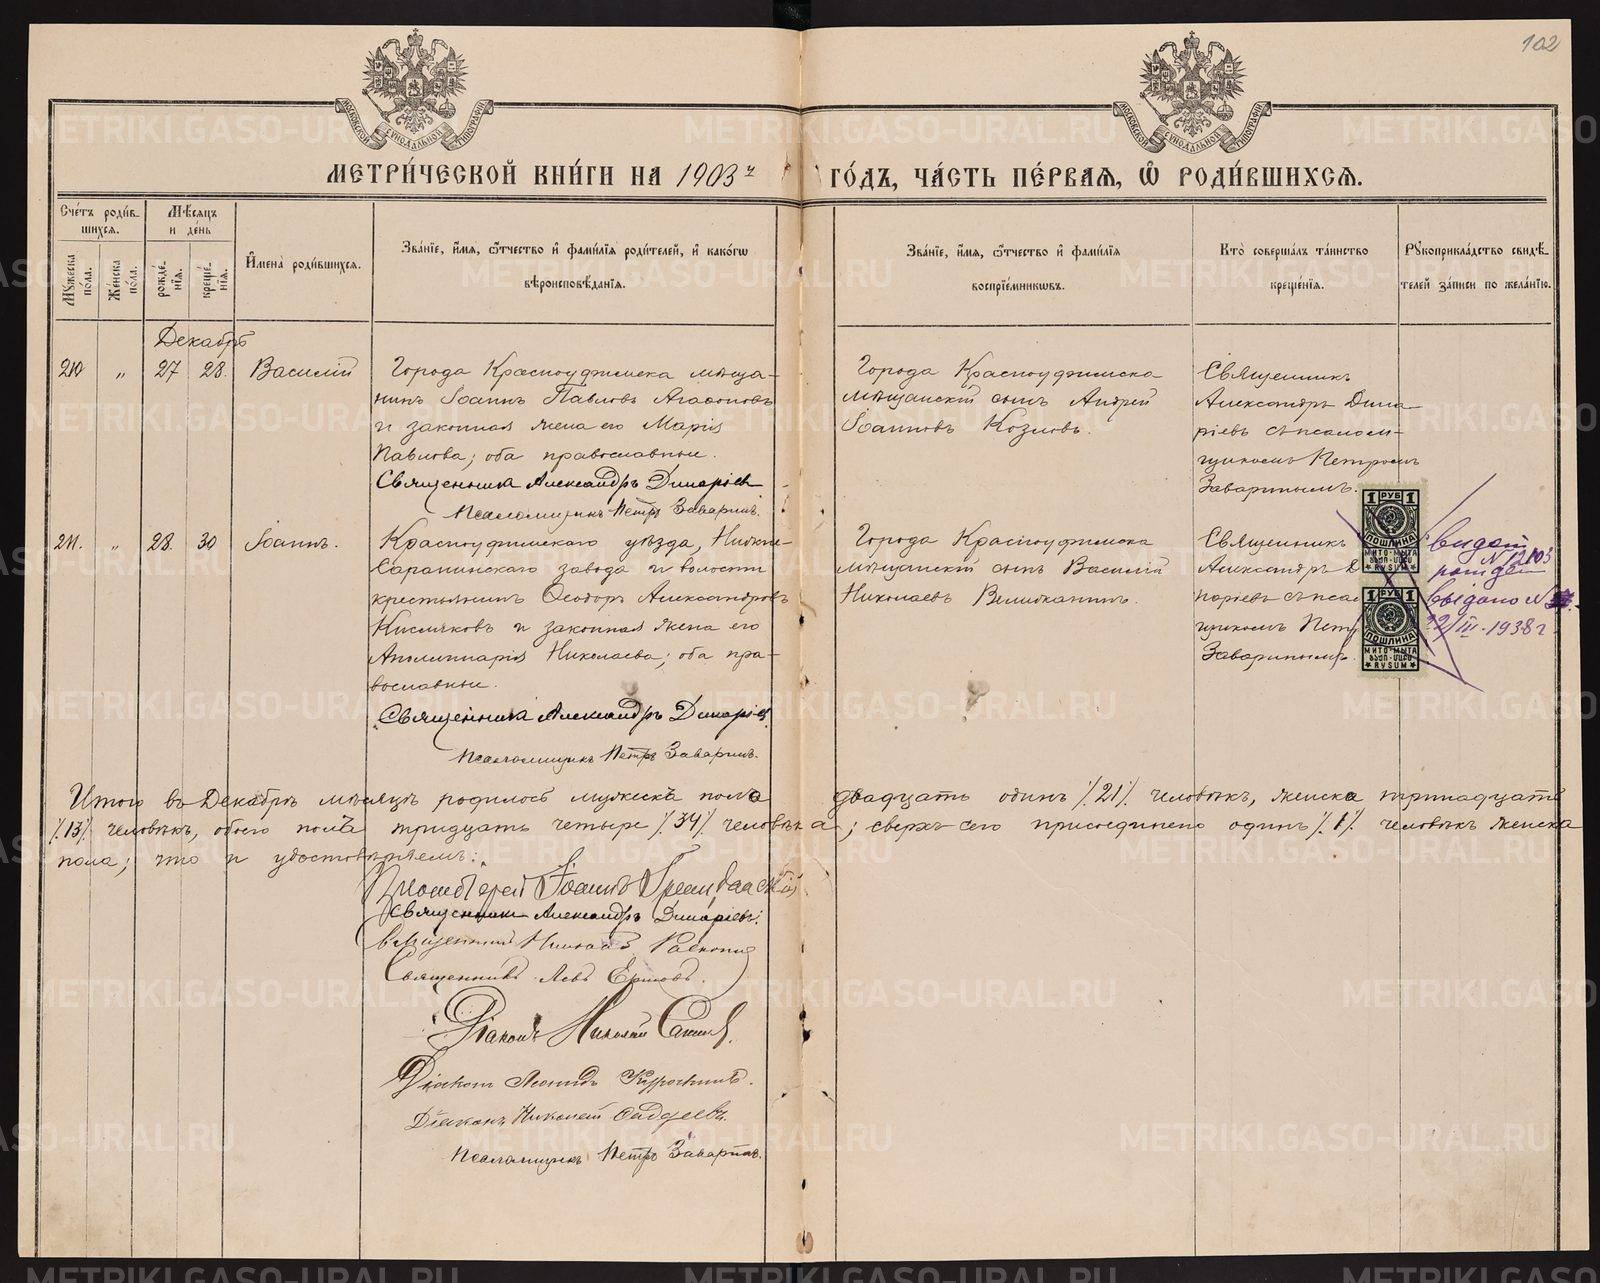 102
МОСКОВСКОЙ СѴНОДАЛЬНОЙ ТИПОГРАФІИ
МОСКОВСКОЙ СѴНОДАЛЬНОЙ ТИПОГРАФІИ
МЕТРИ́ЧЕСКОЙ КНИ́ГИ НА 1903й ГО́ДЪ, ЧА́СТЬ ПЕ́РВАЯ, Ѿ РОДИ́ВШИХСЯ.
Сче́тъ роди́в-
шихся.
Мѣ́сяцъ
и де́нь
Мꙋ́жеска по́ла.
Же́нска по́ла.
рожде́-
нія.
креще́-
нія.
И҆мена̀ роди́вшихся.
Зва́ніе, и҆́мя, ѻ҆́тчество и҆ фами́лія роди́телей, и҆ како́гѡ
вѣроисповѣ́данія.
Зва́ніе, и҆́мя, ѻ҆́тчество и҆ фами́лія
воспріе́мникѡвъ.
Кто̀ соверша́лъ та́инство
креще́нія.
Рꙋкоприкла́дство свидѣ́-
телей за́писи по жела́нію.
Декабрь
210 " 27 28. Василій
Города Красноуфимска мѣща-
нинъ Іоаннъ Павловъ Агафоновъ
и законная жена его Марія
Павлова; оба православные.
Священникъ Александръ Динаріевъ
Псаломщикъ Петръ Заваринъ.
Города Красноуфимска
мѣщанскій сынъ Андрей
Іоанновъ Козловъ.
Священникъ
Александръ Дина-
ріевъ съ псалом-
щикомъ Петромъ
Заваринымъ.
211. " 28. 30 Іоаннъ.
Красноуфимскаго уѣзда, Нижне-
Саранинскаго завода и волости
крестьянинъ Ѳеодоръ Александровъ
Кисляковъ и законная жена его
Аполлинарія Николаева; оба пра-
вославные.
Священникъ Александръ Динаріевъ
Псаломщикъ Петръ Заваринъ.
Города Красноуфимска
мѣщанскій сынъ Василій
Николаевъ Великанинъ.
Священникъ
Александръ Д
наріевъ съ пса
щикомъ Петр
Заваринымъ.
1 РУБ 1
ПОШЛИНА
МИТО-МЫТА
RVSUM
1 РУБ 1
ПОШЛИНА
МИТО-МЫТА
RVSUM
N 12103
выдано N
22/III-1938 г
Итого въ Декабрѣ мѣсяцѣ родилось мужеска пола двадцать одинъ /.21/. человѣкъ, женска тринадцать
/.13/. человѣкъ, обоего пола тридцать четыре /.34/. человѣка; сверхъ сего присоединено одинъ /.1/. человѣкъ женска
пола; что и удостовѣряемъ:
Протоіерей Іоаннъ
Священникъ Александръ Динаріевъ.
Священникъ
Священникъ Левъ Ершовъ.
Діаконъ Николай
Діаконъ Леонидъ
Діаконъ Николай Фаддеевъ.
Псаломщикъ Петръ Заваринъ.
METRIKI.GASO-URAL.RU